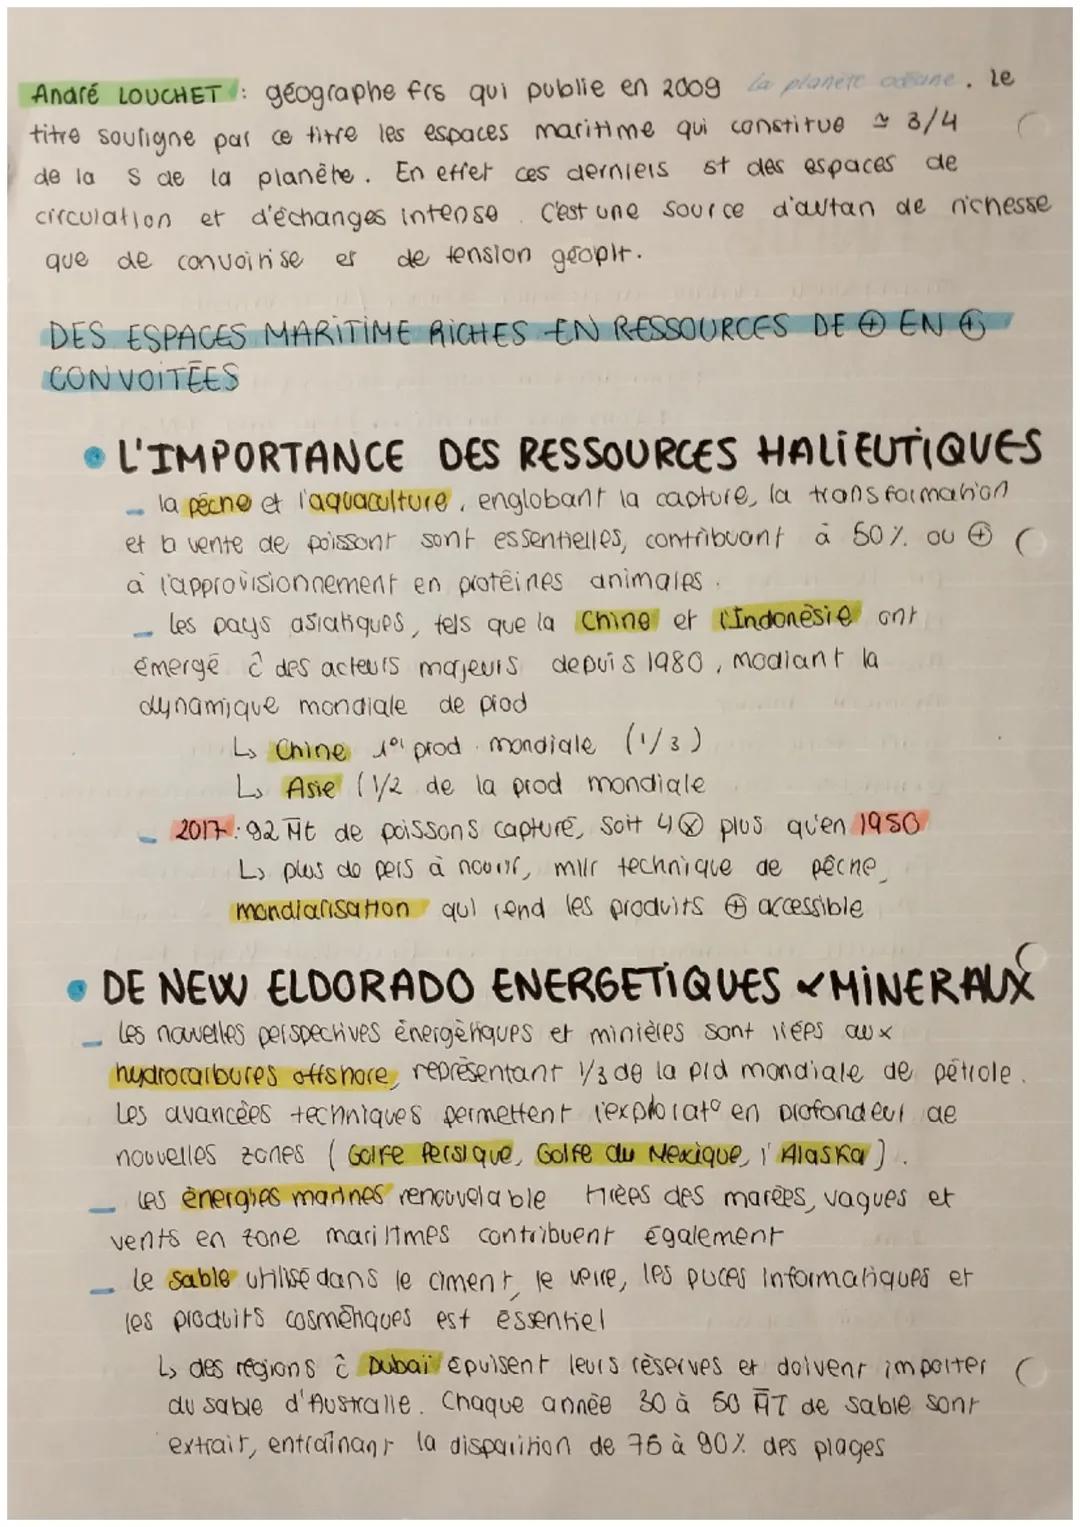 André LOUCHET : géographe frs qui publie en 2009 la planète océane. le
titre souligne par ce titre les espaces maritime qui constitue ≃ 3/4
de la S de la planète. En effet ces derniers st des espaces de
circulation et d'échanges intense. C'est une source d'autan de richesse
que de convoirise et de tension géoplt.
DES ESPACES MARITIME RICHES EN RESSOURCES DE ⊕ EN ⊕
CONVOITÉES
• L'IMPORTANCE DES RESSOURCES HALIEUTIQUES
– la pêche et l'aquaculture, englobant la capture, la transformation
et la vente de poissont sont essentielles, contribuant à 50% ou ⊕
à l'approvisionnement en protéines animales.
– les pays asiatiques, tels que la Chine et l'Indonésie ont
émergé ĉ des acteurs majeurs depuis 1980, modiant la
dynamique mondiale de prod
↳ Chine 1er prod. mondiale (1/3)
↳ Asie (1/2 de la prod mondiale
– 2017 : 92 Mt de poissons capturé, soit 4⊗ plus qu'en 1950
↳ plus de pers à nourir, mllr technique de pêche,
mondialisation qui rend les produits ⊕ accessible
• DE NEW ELDORADO ENERGETIQUES & MINERAUX
– les nouvelles perspectives énergétiques et minières sont liées aux
hydrocarbures offshore, représentant 1/3 de la prd mondiale de pétrole.
Les avancées techniques permettent l'explorat° en profondeur de
nouvelles zones (Golfe Persique, Golfe du Mexique, l'Alaska).
– les énergies marines renouvelable tirées des marées, vagues et
vents en zone maritimes contribuent également
– le sable utilisé dans le ciment, le verre, les puces informatiques et
les produits cosmétiques est essentiel
↳ des régions ĉ Dubaï épuisent leurs réserves et doivent importer
du sable d'Australie. Chaque année 30 à 50 MT de sable sont
extrait, entraînant la disparition de 75 à 90% des plages